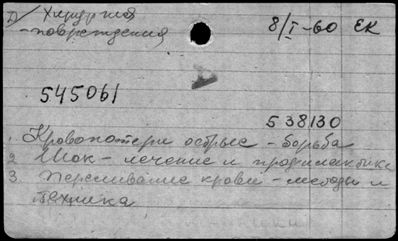 D/ Хирургия
- повреждения 8/I-60 ЕК
545061
538130
1. Кровопотери острые - борьба
2 Шок - лечение и профилактика
3. Переливание крови - методы и
техника